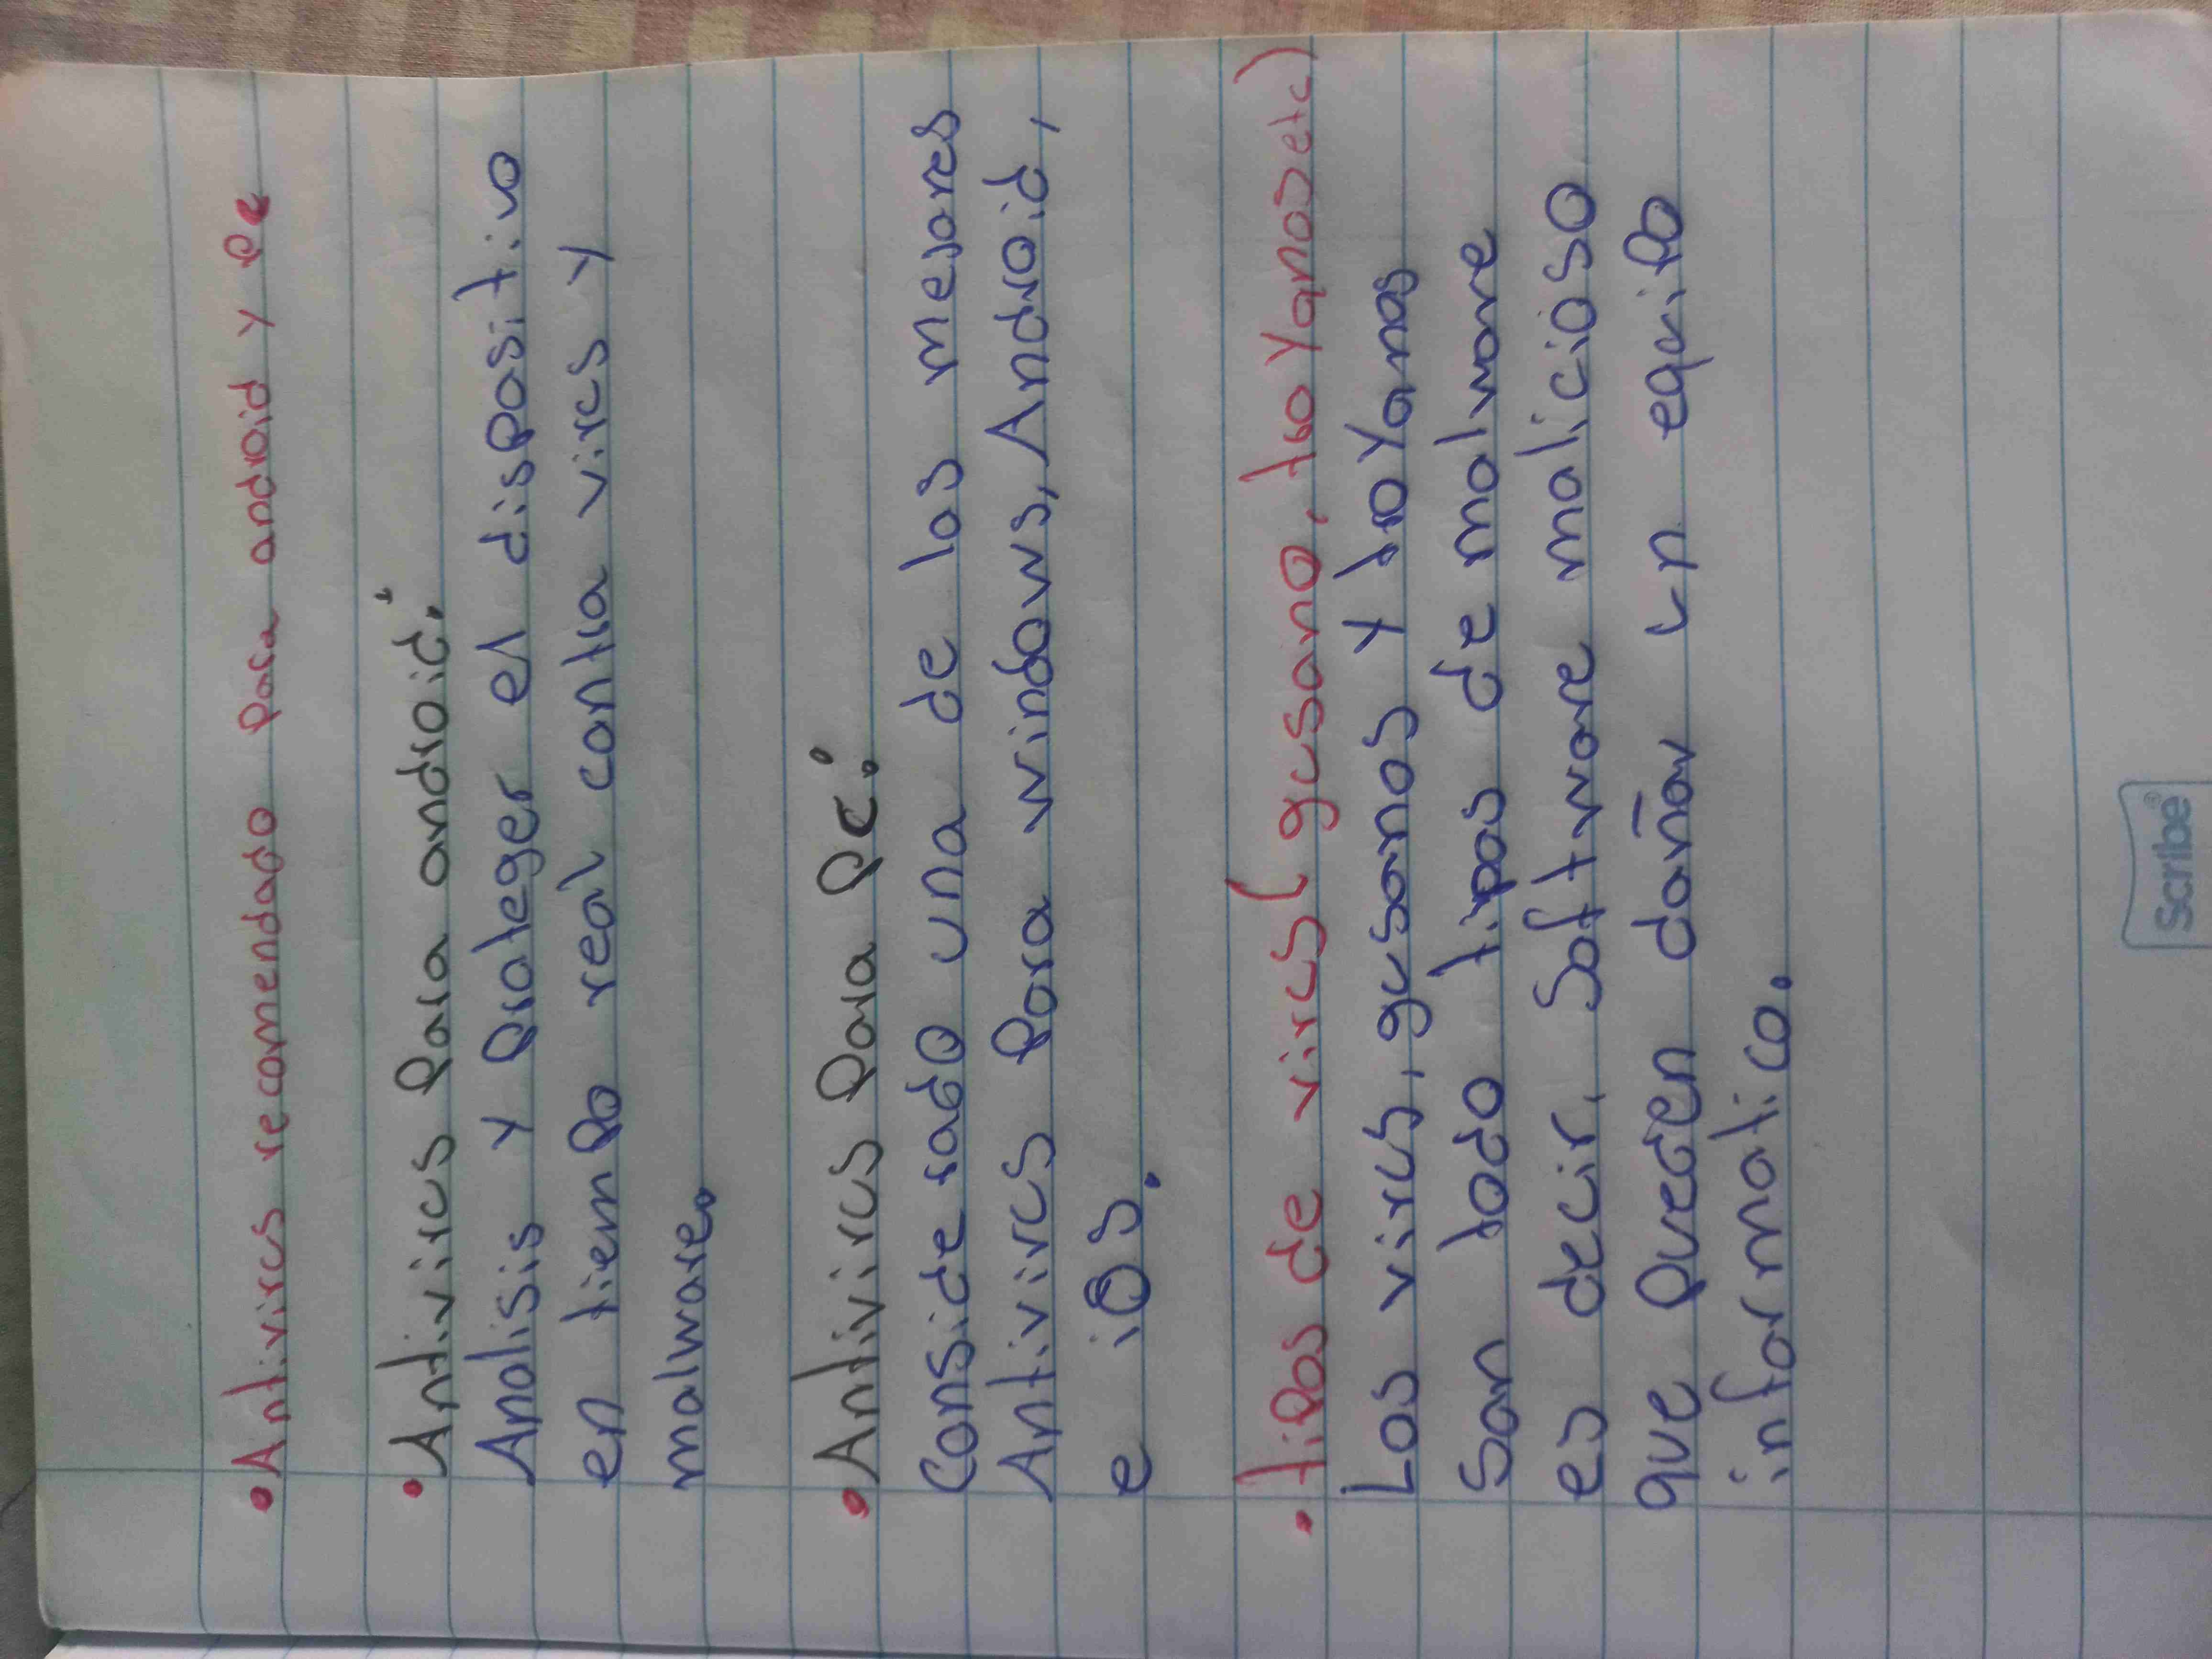 • Antivirus recomendado para android y pc
• Antivirus para android:
Analisis y proteger el dispositivo
en tiempo real contra virus y
malware.
• Antivirus para pc:
Considerado una de los mejores
Antivirus para windows, Android,
e iOS.
• tipos de virus (gusano, troyanos etc)
Los virus, gusanos y troyanos
son todo tipos de malware
es decir, software malicioso
que pueden dañar un equipo
informatico.
Scribe®